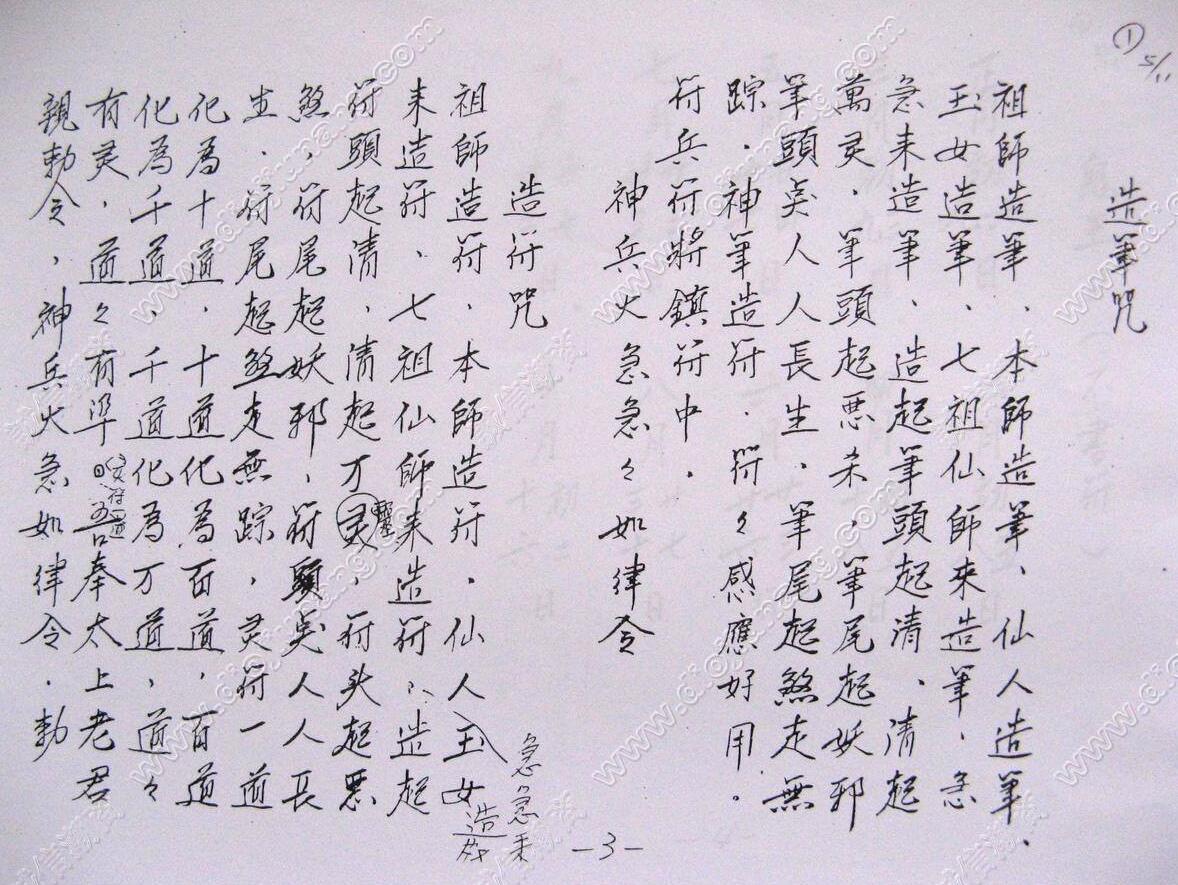 ① 5/11
造筆咒
祖師造筆、本師造筆、仙人造筆、
玉女造筆、七祖仙師來造筆、急
急来造筆、造起筆頭起清、清起
萬灵、筆頭起悪杀、筆尾起妖邪
筆頭矣人人長生、筆尾起煞走無
踪.神筆造符.符々感應好用.
符兵符將鎮符中.
神兵火急急々如律令
造符咒
祖師造符、本師造符、仙人玉女造符 急急来
来造符、七祖仙師来造符、造起
符頭起清、清起万灵、符头起悪
煞,符尾起妖邪,符頭矣人人長
生.符尾起煞走無踪,灵符一道
化為十道.十道化為百道,百道
化為千道,千道化為万道,道々
有灵.道々有準 吾奉太上老君
親勅令,神兵火急如律令.勅
-3-